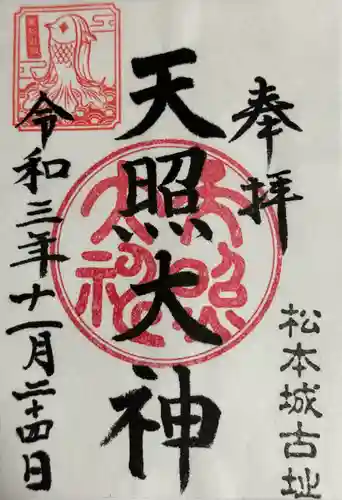 奉拝
松本城古址
天照大神
令和三年十一月二十四日